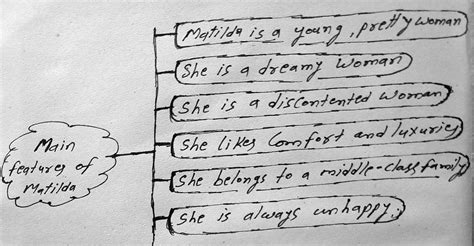 Matilda is a young, pretty woman
She is a dreamy woman
She is a discontented woman
She likes Comfort and luxuries
She belongs to a middle-class family
She is always unhappy.
Main
features of
Matilda